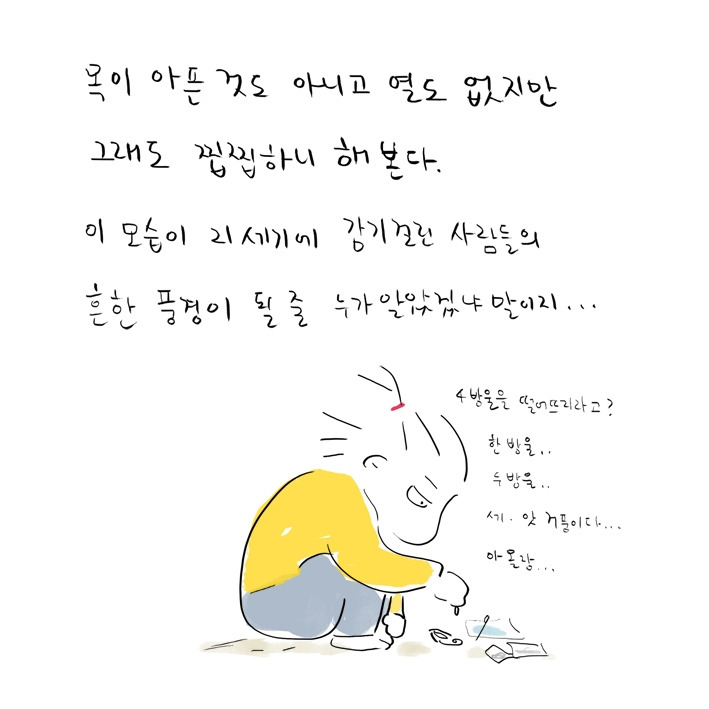 목이 아픈것도 아니고 열도 없지만
그래도 찝찝하니 해본다.
이 모습이 21세기에 감기걸린 사람들의
흔한 풍경이 될 줄 누가 알았겠냐 말이지...
4방울을 떨어뜨리라고?
한방울..
두방울..
세. 앗 거품이다...
아 몰랑...